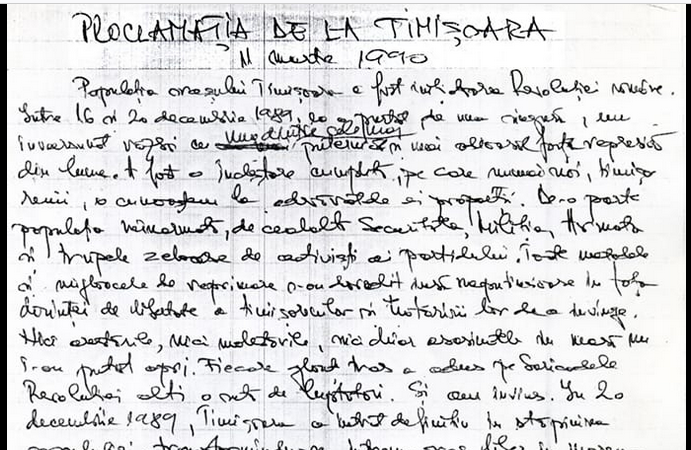 PROCLAMAȚIA DE LA TIMIȘOARA
11 martie 1990
Populația orașului Timișoara a fost inițiatoarea Revoluției române.
Între 16 și 20 decembrie 1989, ea a purtat, de una singură, un
înverșunat război cu unul dintre cele mai puternice și mai odioase forțe represive
din lume. A fost o încleștare cumplită, pe care numai noi, timișo
renii, o cunoaștem la adevăratele ei proporții. De-o parte
populația neînarmată, de cealaltă Securitatea, Miliția, Armata
și trupele zeloase de activiști ai partidului. Toate metodele
și mijloacele de reprimare s-au dovedit însă neputincioase în fața
dorinței de libertate a timișorenilor și hotărârii lor de a învinge.
Nici arestările, nici molestările, nici chiar asasinatele în masă nu
i-au putut opri. Fiecare glonț tras a adus pe baricadele
Revoluției alți o sută de luptători. Și am învins. În 20
decembrie 1989, Timișoara a intrat definitiv în stăpânirea